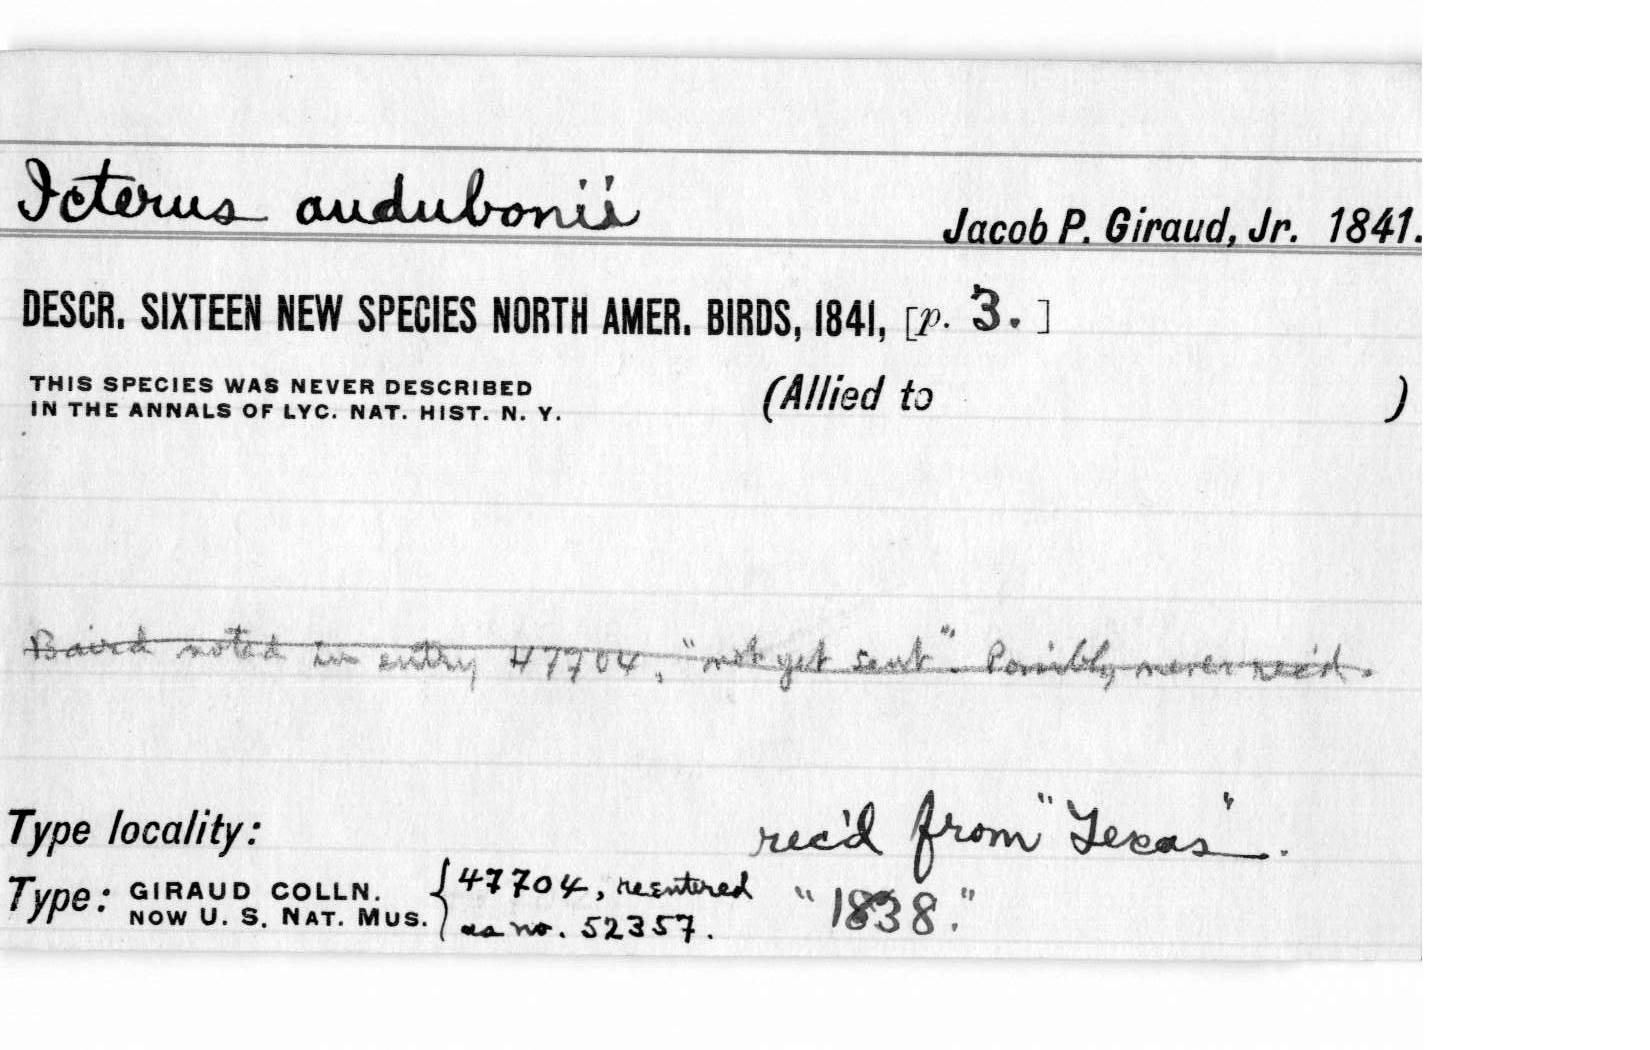 Icterus audubonii
Jacob P. Giraud, Jr. 1841.
DESCR. SIXTEEN NEW SPECIES NORTH AMER. BIRDS, 1841, [p. 3. ]
THIS SPECIES WAS NEVER DESCRIBED
IN THE ANNALS OF LYC. NAT. HIST. N. Y.
(Allied to )
Baird noted in entry 47704, "not yet sent". Possibly never rec'd.
Type locality: rec'd from "Texas".
Type: GIRAUD COLLN.
NOW U. S. NAT. MUS.
{47704, reentered
as no. 52357.
"1838."